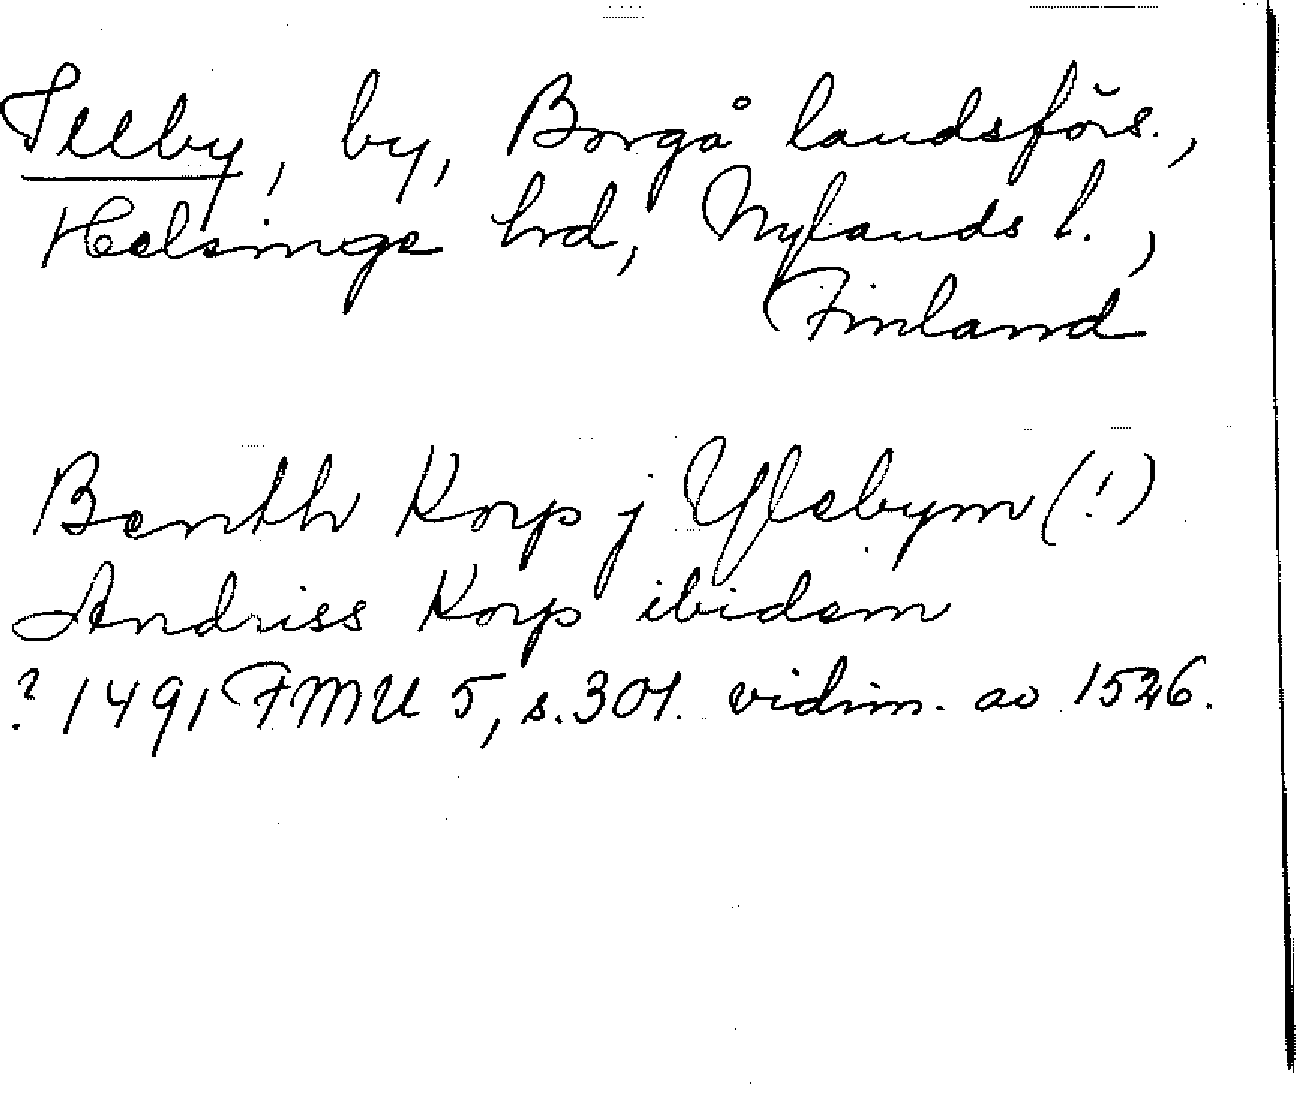 Illby, by, Borgå landsförs.,
Helsinge hrd, Nylands l.,
Finland
Benth Korp j Ylebym (!)
Andriss Korp ibidem
? 1491 FMU 5, s. 301. vidim. av 1526.